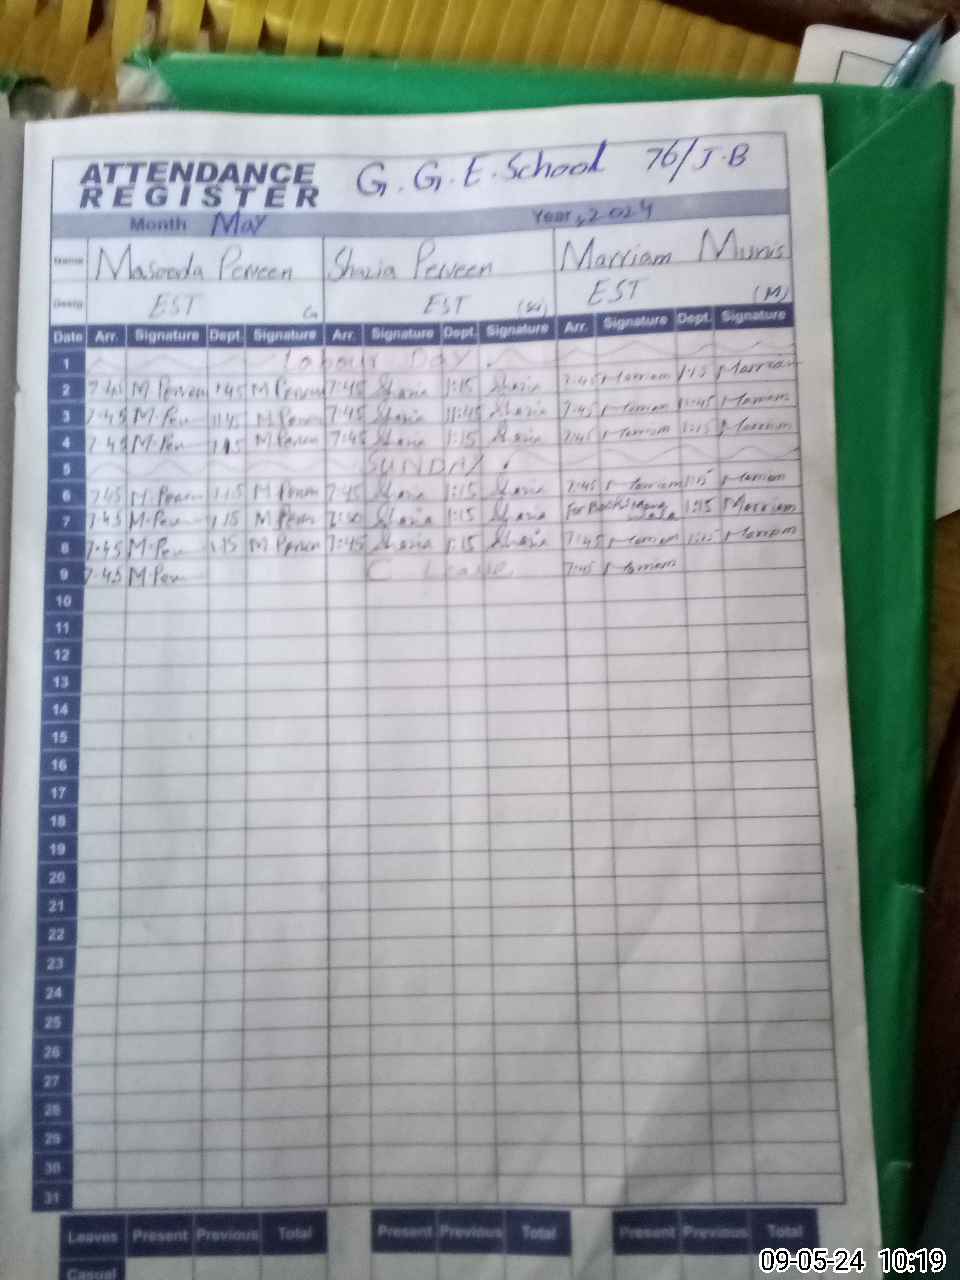 ATTENDANCE REGISTER G.G.E.School 76/J.B
Month May Year 2024
Name Masooda Perveen Shazia Perveen Marriam Munis
Desig EST G EST EST (M)
Date Arr. Signature Dept. Signature Arr. Signature Dept. Signature Arr. Signature Dept. Signature
1 Labour Day.
2 M Perveen 1:45 M Perveen 7:45 Shazia 1:15 Shazia 7:45 Marriam 1:15 Marriam
3 7:45 M.Per 11:45 M Perveen 7:45 Shazia 11:45 Shazia 7:45 Marriam 11:45 Marriam
4 7:45 M.Per 1:15 M Perveen 7:45 Shazia 1:15 Shazia 7:45 Marriam 1:15 Marriam
5 SUNDAY.
6 7:45 M.Perveen 1:15 M Perveen 7:45 Shazia 1:15 Shazia 7:45 Marriam 1:15 Marriam
7 7:45 M.Per 1:15 M Perveen Shazia 1:15 Shazia For Books 1:15 Marriam
8 7:45 M.Per 1:15 M Perveen 7:45 Shazia 1:15 Shazia 7:45 Marriam 1:15 Marriam
9 7:45 M.Per C Leave 7:45 Marriam
10
11
12
13
14
15
16
17
18
19
20
21
22
23
24
25
26
27
28
29
30
31
Leaves Present Previous Total Present Previous Total Present Previous Total
Casual
09-05-24 10:19